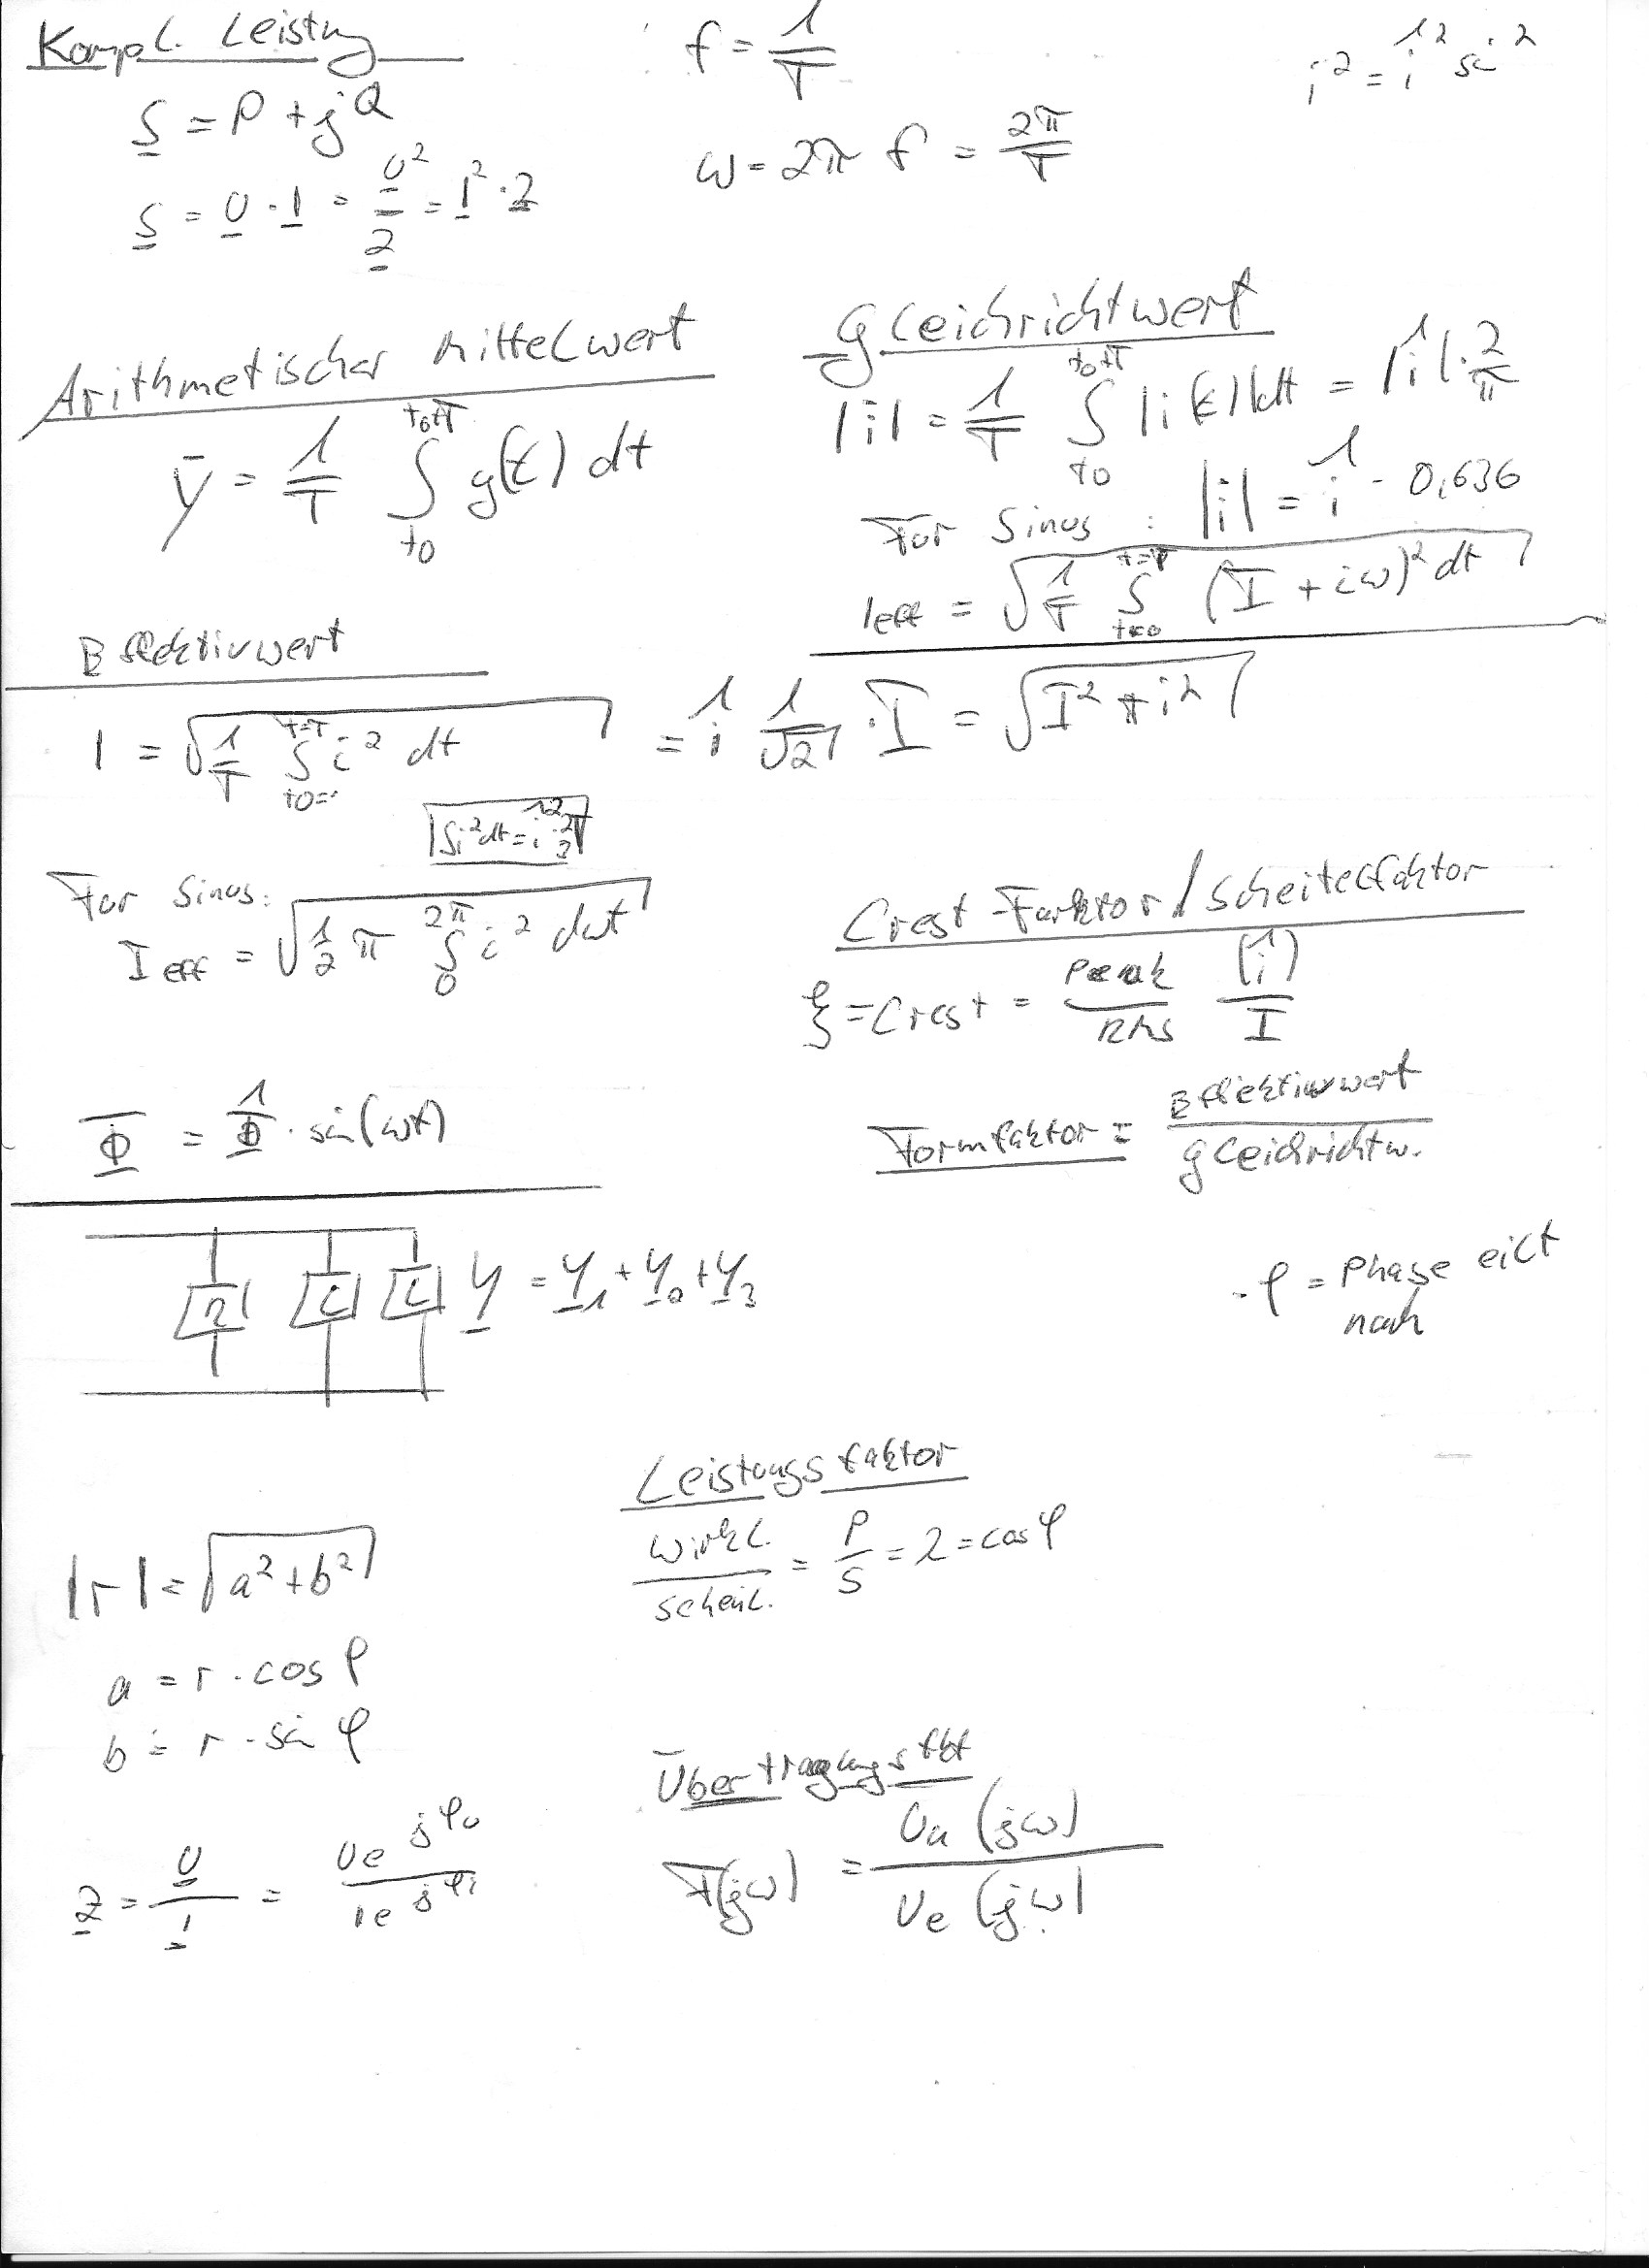 Kompl. Leistung
S = P + jQ
S = U · I = U² / Z = I² · Z
f = 1/T
ω = 2π f = 2π/T
i² = î² si²
Arithmetischer Mittelwert
ȳ = 1/T ∫ t0 t0+T g(t) dt
Gleichrichtwert
|i| = 1/T ∫ t0 t0+T |i(t)| dt = |î| · 2/π
Für Sinus: |i| = î · 0,636
Ieff = √ 1/T ∫ t=0 t=T (I + iω)² dt
Effektivwert
I = √ 1/T ∫ i² dt = î 1/√2 · I = √ I² + i²
∫i² dt = î²
Für Sinus:
Ieff = √ 1/2 π ∫ 0 2π i² dωt
Crest-Faktor / Scheitelfaktor
ξ = Crest = Peak/RMS (î)/I
Formfaktor = Effektivwert / Gleichrichtw.
Φ = Φ̂ · sin(ωt)
R L C Y = Y1 + Y2 + Y3
-φ = Phase eilt
nach
Leistungsfaktor
Wirkl. / Scheinl. = P/S = λ = cos φ
|r| = √ a² + b²
a = r · cos φ
b = r · sin φ
Übertragungsfkt
F(jω) = Ua (jω) / Ue (jω)
Z = U / I = Ue jφu / Ie jφi